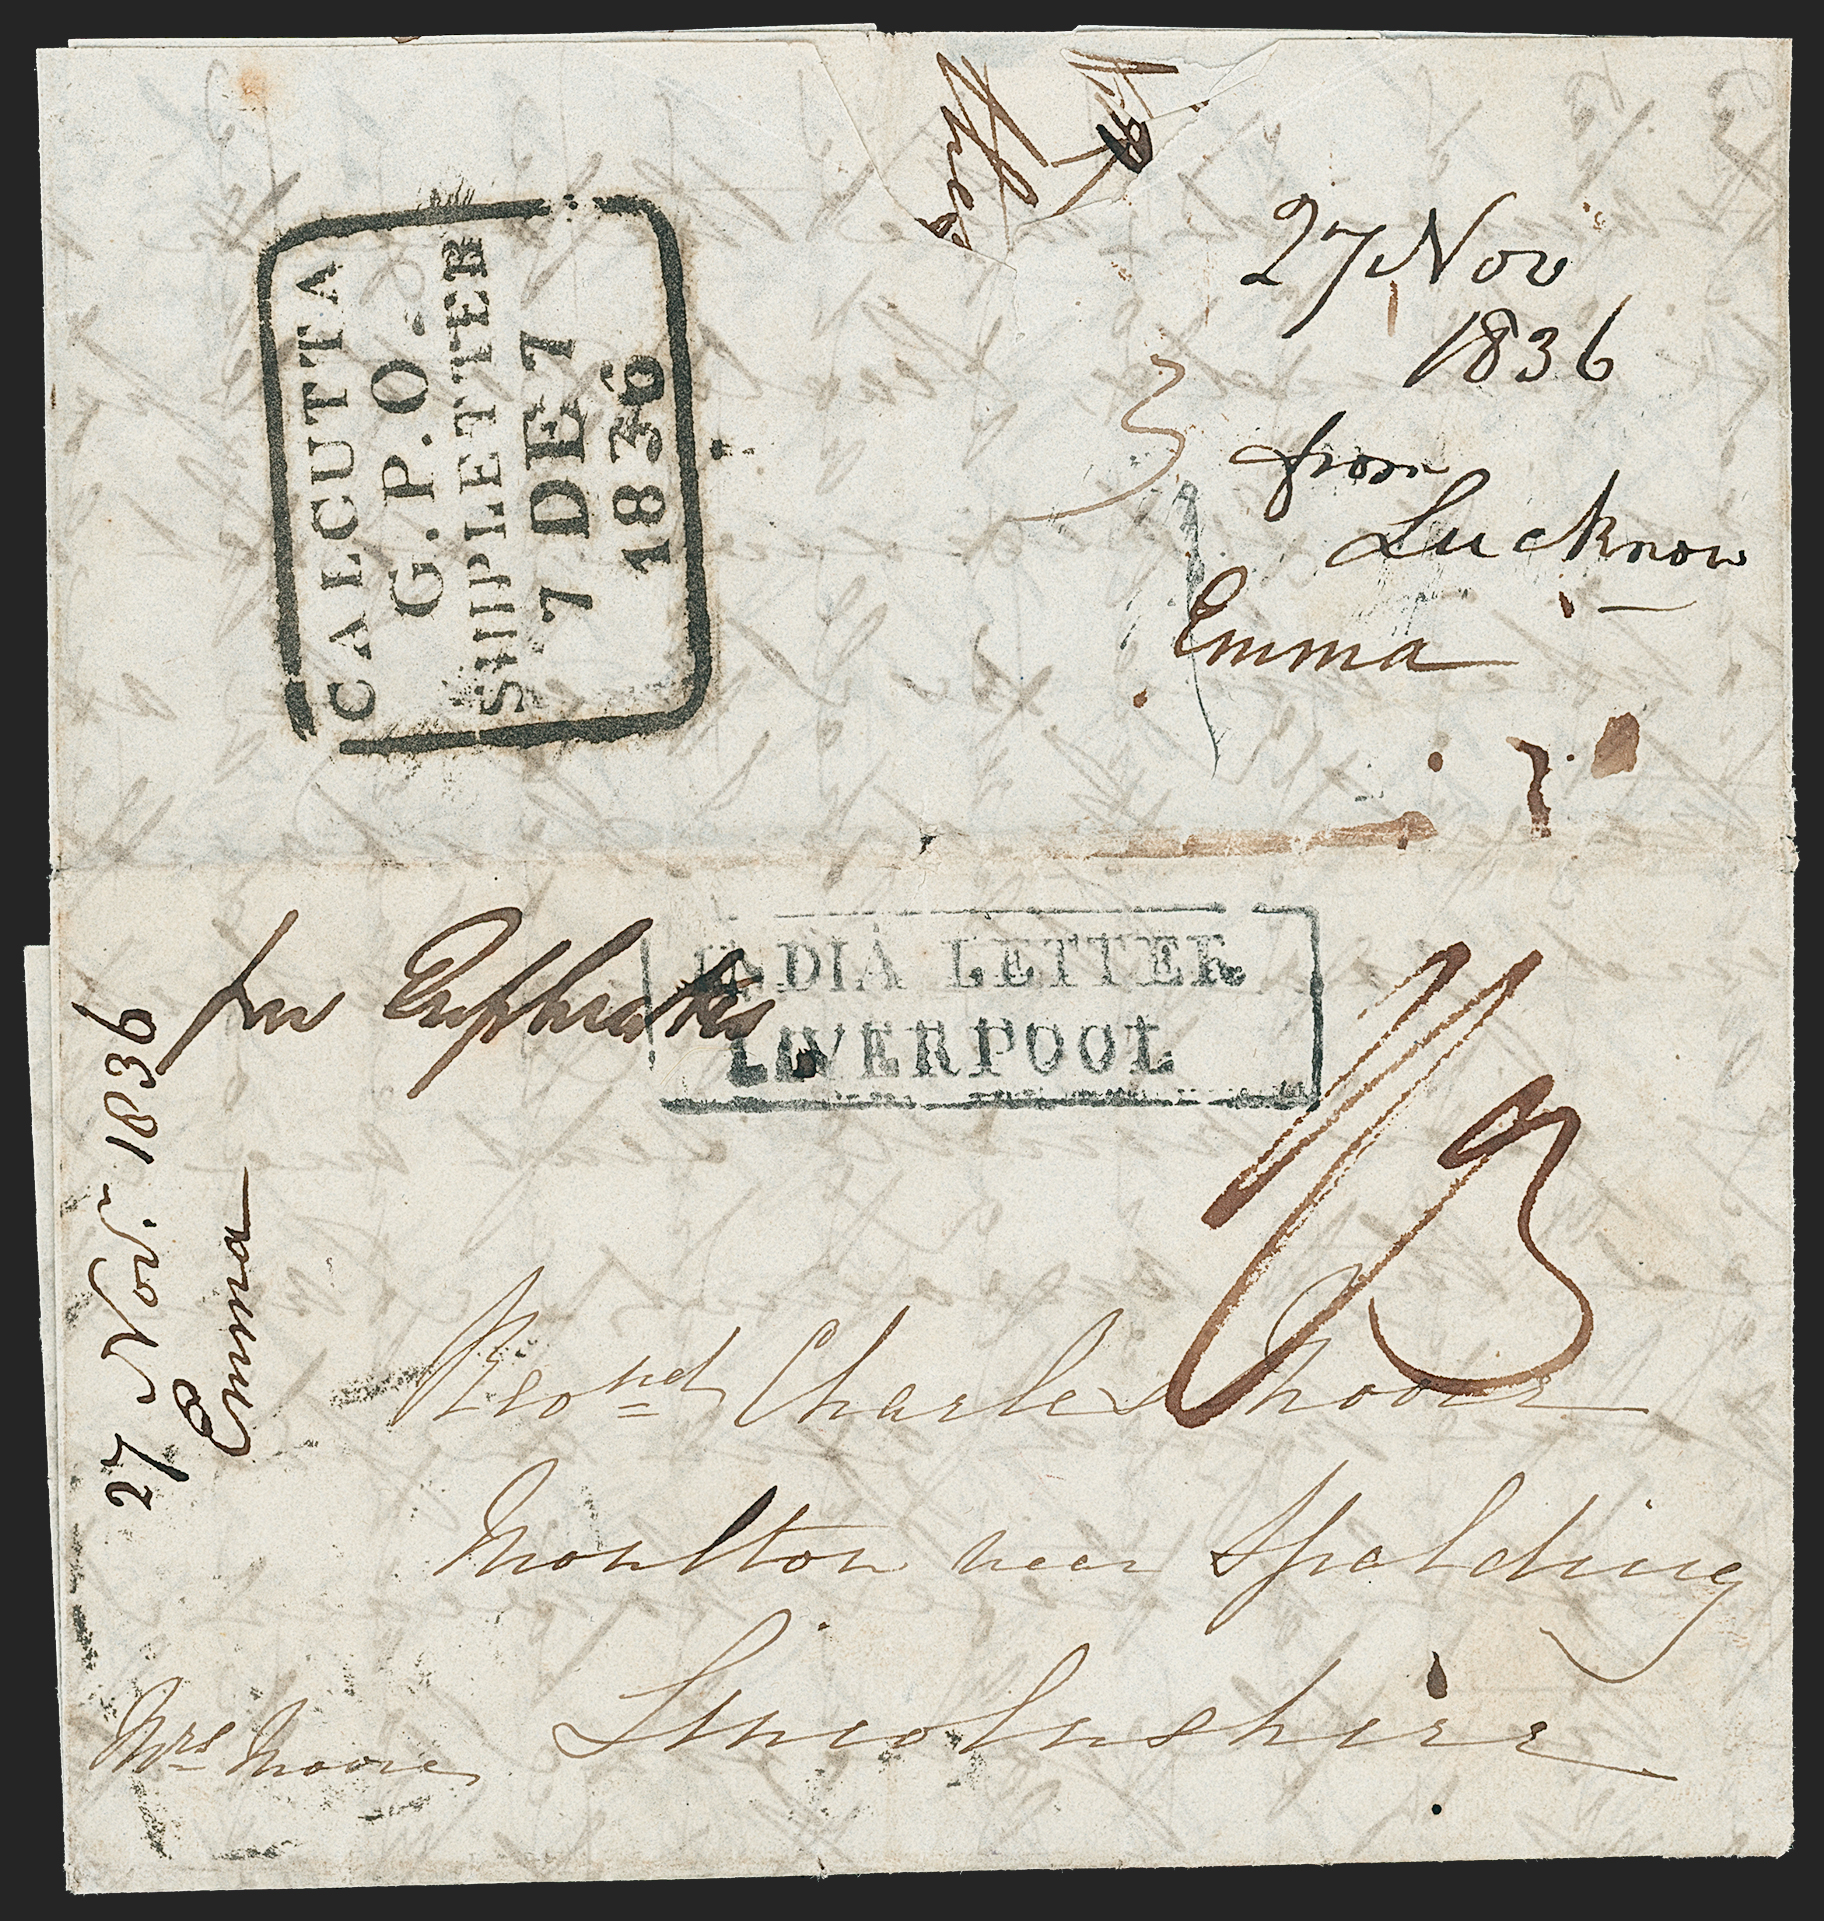 CALCUTTA
G.P.O.
SHIP LETTER
7 DE 7
1836
27 Nov
1836
from
Lucknow
Emma
3
per Euphrates
INDIA LETTER
LIVERPOOL
1/3
27 Novr 1836
Emma
Revnd Charles Moore
Moulton near Spalding
Lincolnshire
Mrs Moore